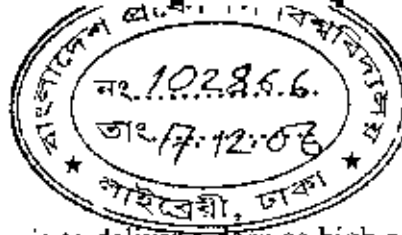 বাংলাদেশ প্রকৌশল বিশ্ববিদ্যালয়
নং 102866.
তাং 17.12.06
★ লাইব্রেরী, ঢাকা ★